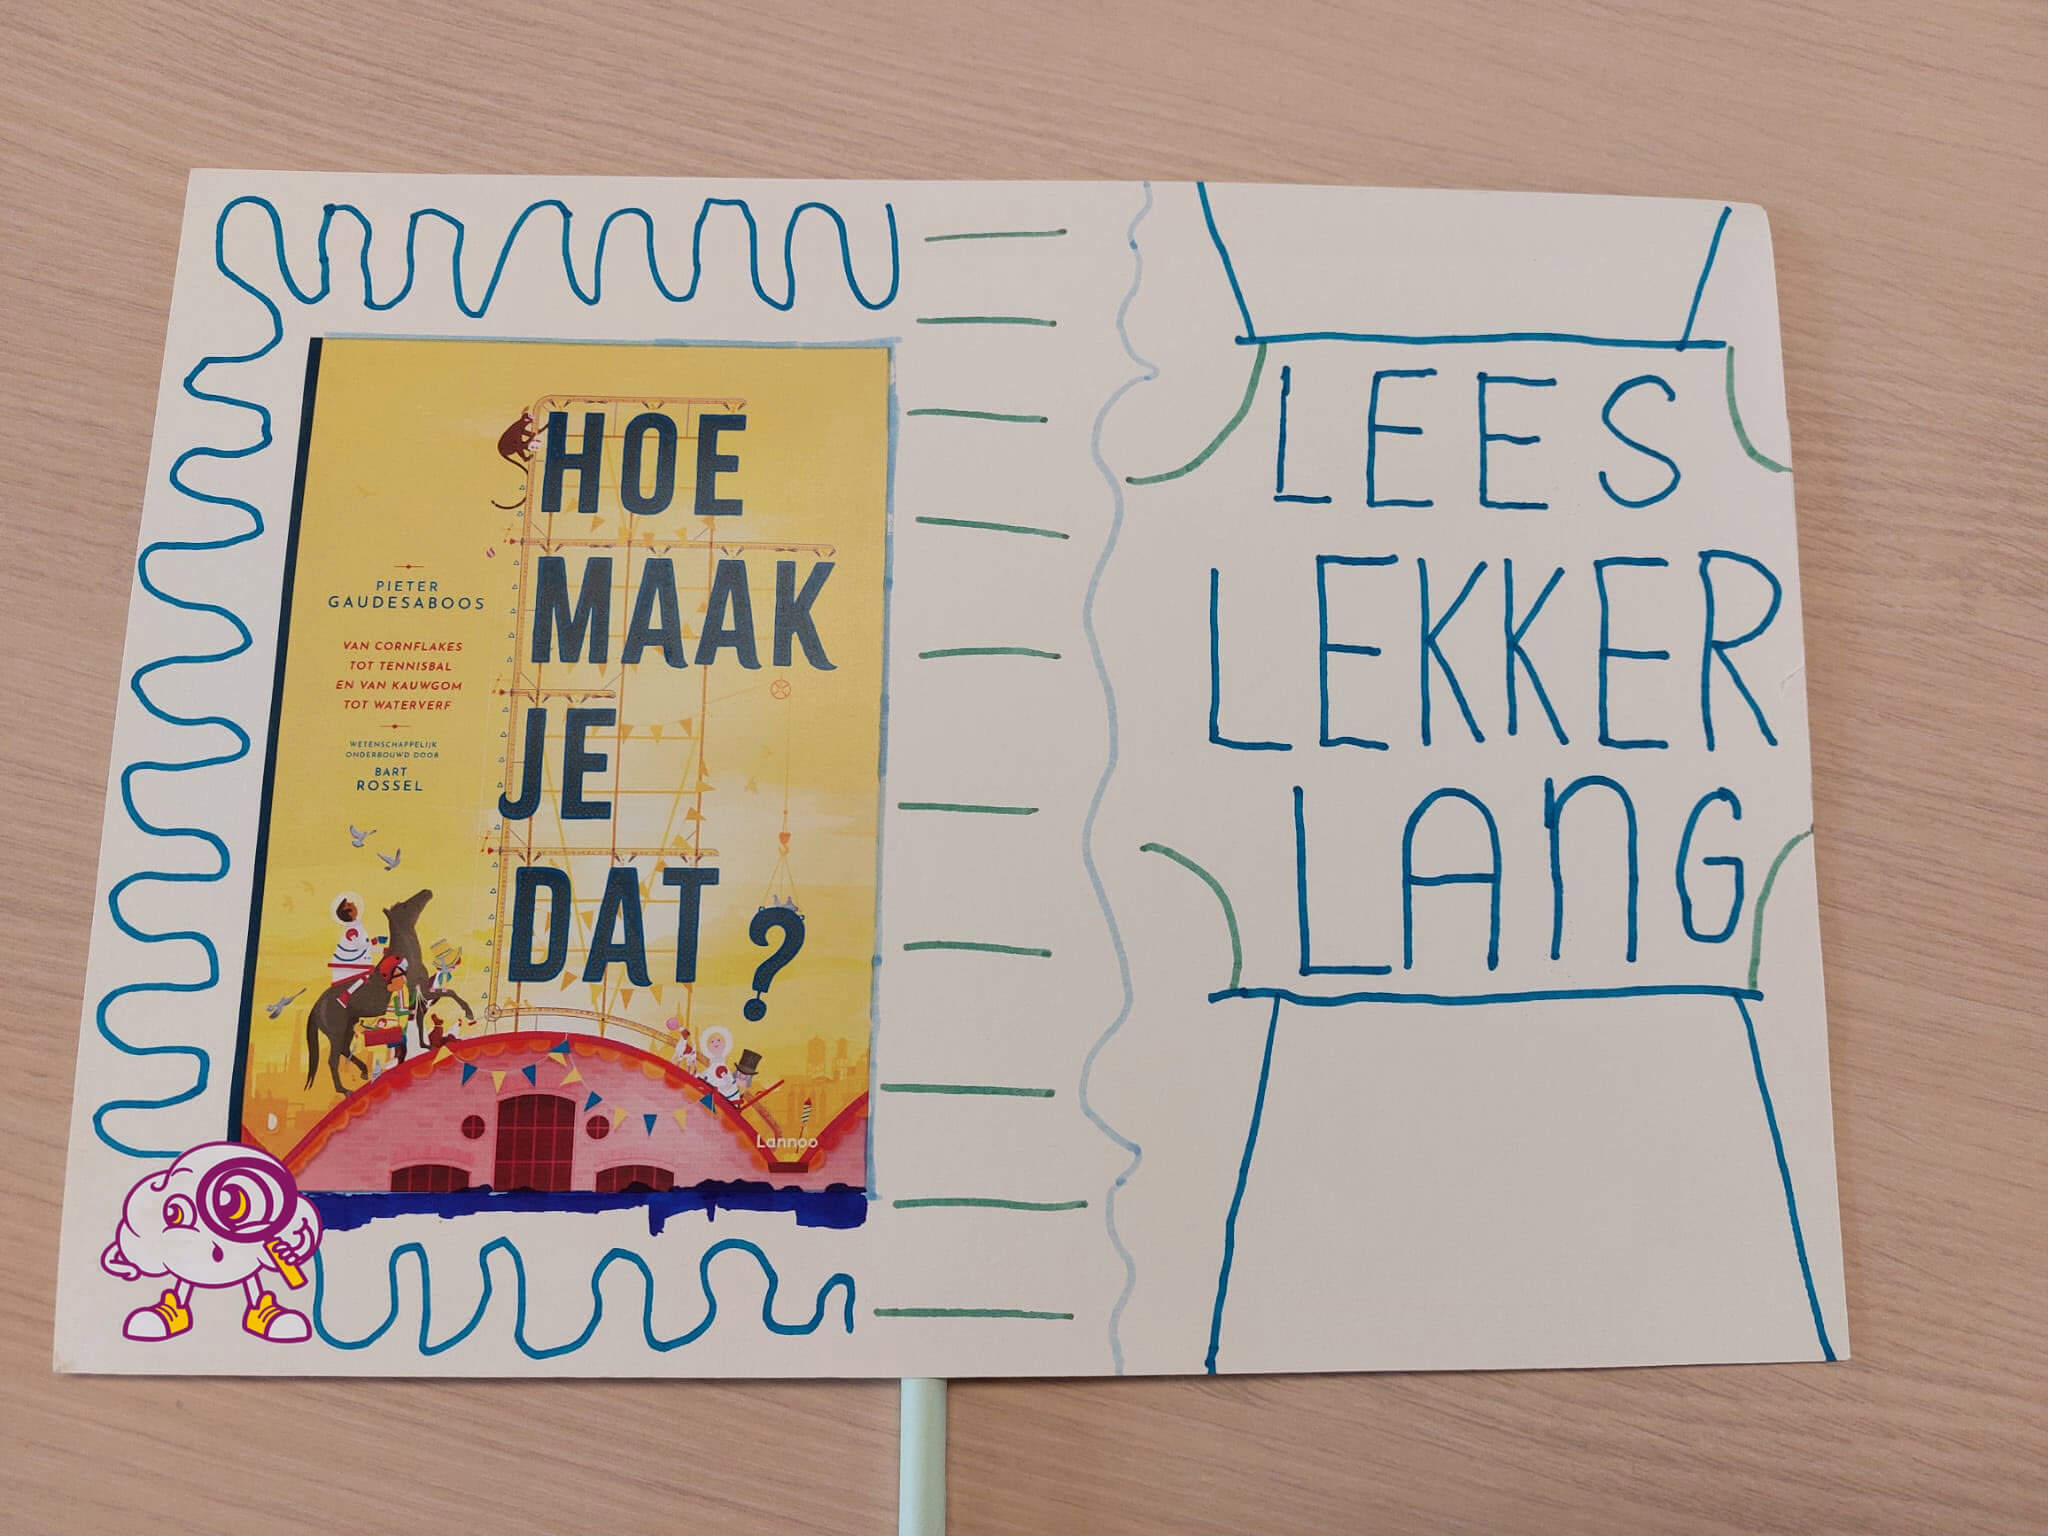 HOE
MAAK
JE
DAT?
PIETER
GAUDESABOOS
VAN CORNFLAKES
TOT TENNISBAL
EN VAN KAUWGOM
TOT WATERVERF
WETENSCHAPPELIJK
ONDERBOUWD DOOR
BART
ROSSEL
Lannoo
LEES
LEKKER
LANG